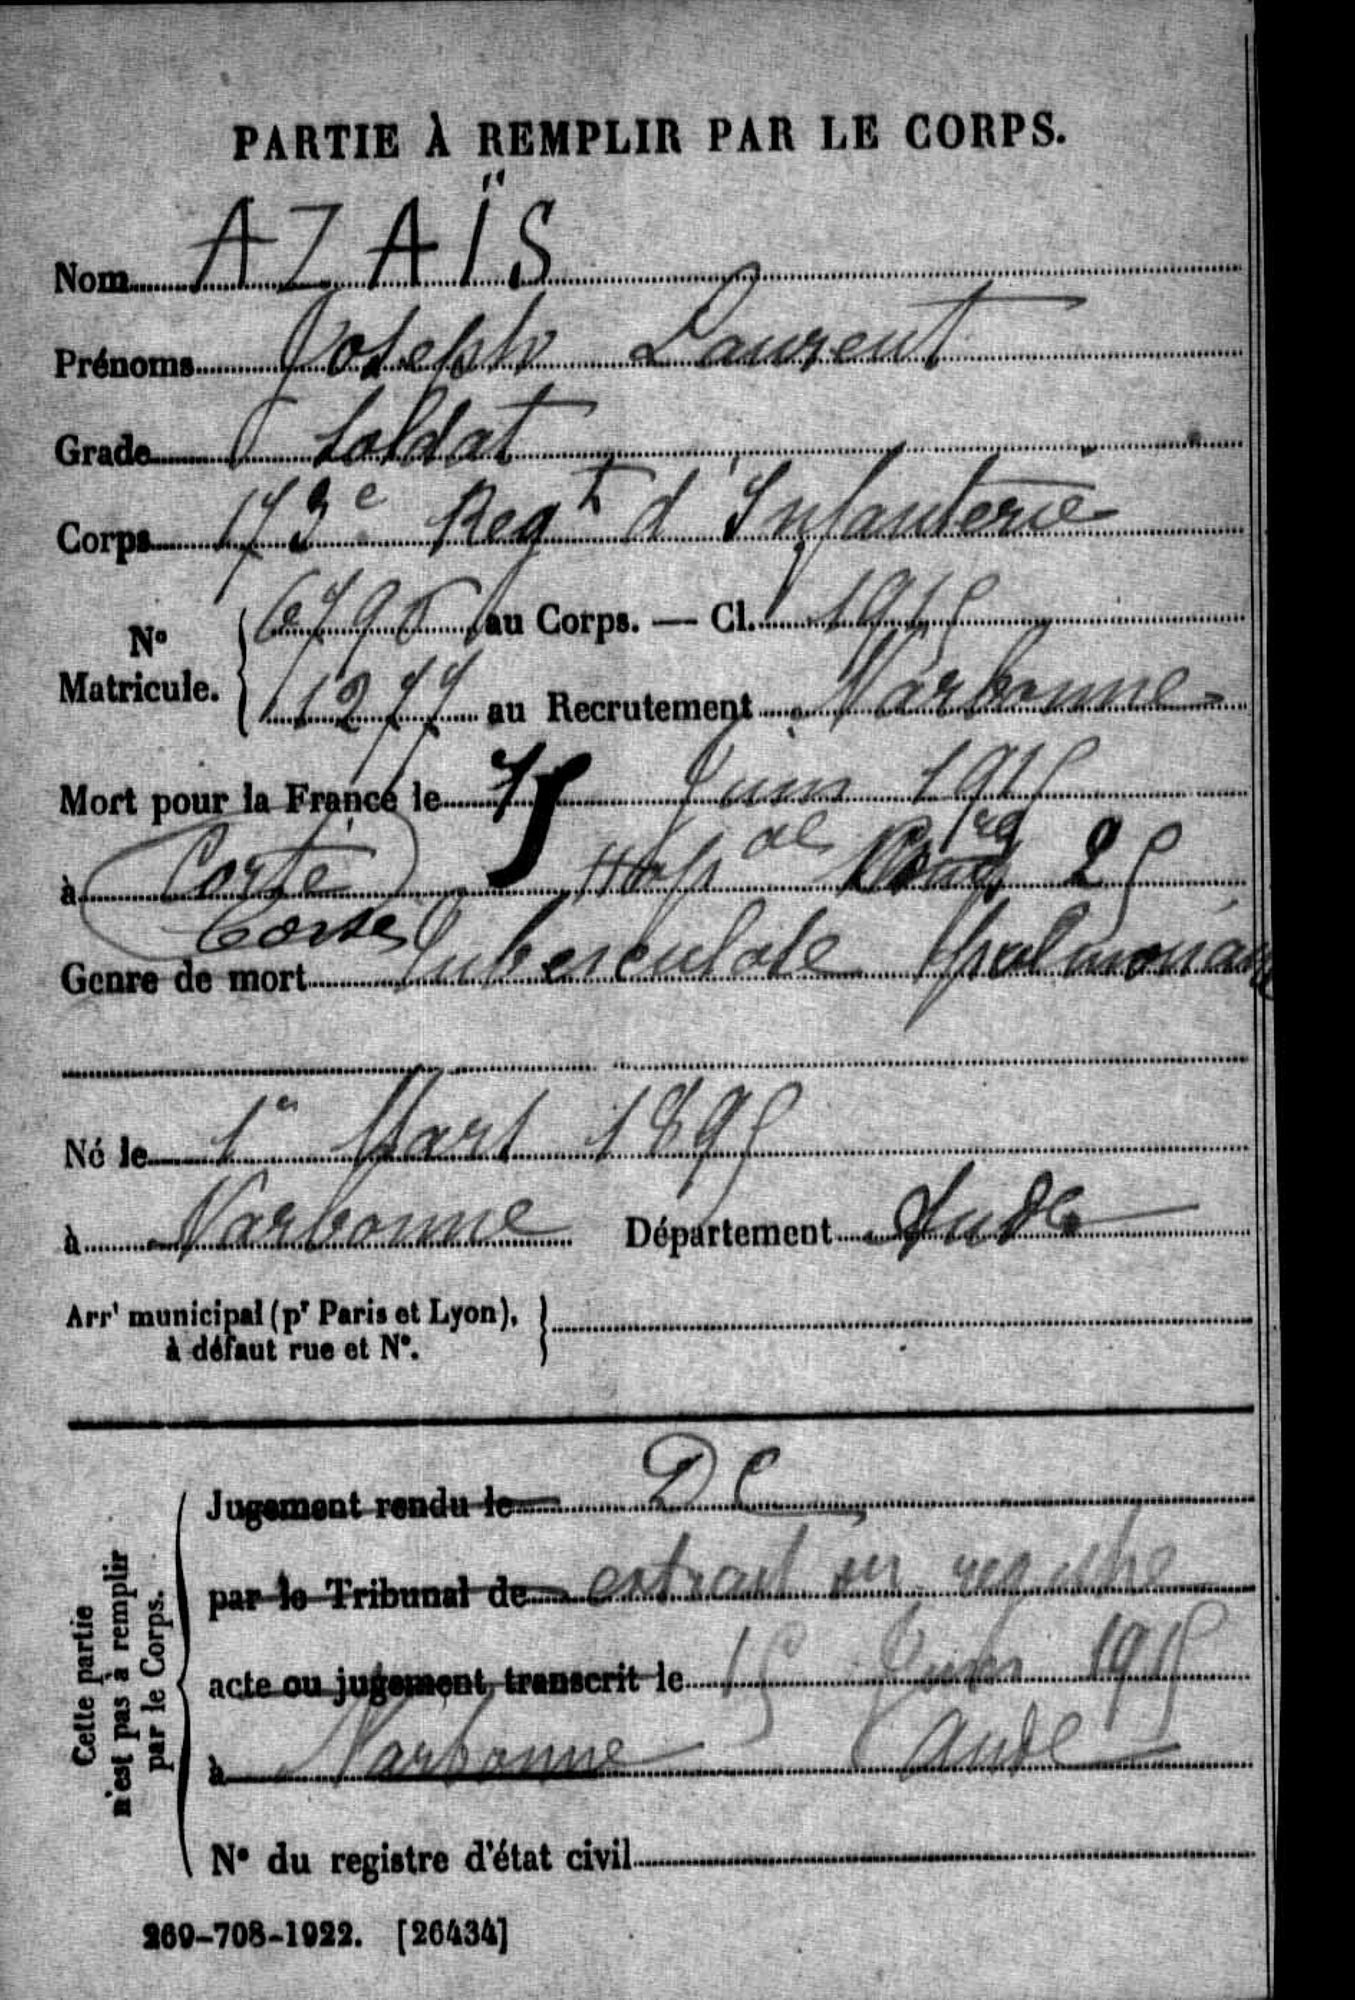 PARTIE À REMPLIR PAR LE CORPS.
Nom AZAÏS
Prénoms Joseph Laurent
Grade Soldat
Corps 173e Regt d'Infanterie
No Matricule. 6798 au Corps. — Cl. 1915
1277 au Recrutement Narbonne
Mort pour la France le 15 Juin 1915
à Corte Hop al 25
Corse
Genre de mort Tuberculose pulmonaire
Né le 1er Mars 1895
à Narbonne Département Aude
Arrt municipal (pr Paris et Lyon),
à défaut rue et No.
Cette partie
n'est pas à remplir
par le Corps.
Jugement rendu le DC
par le Tribunal de extrait registre
acte ou jugement transcrit le 15 Juin 1915
à Narbonne Aude
No du registre d'état civil
269-708-1922. [26434]